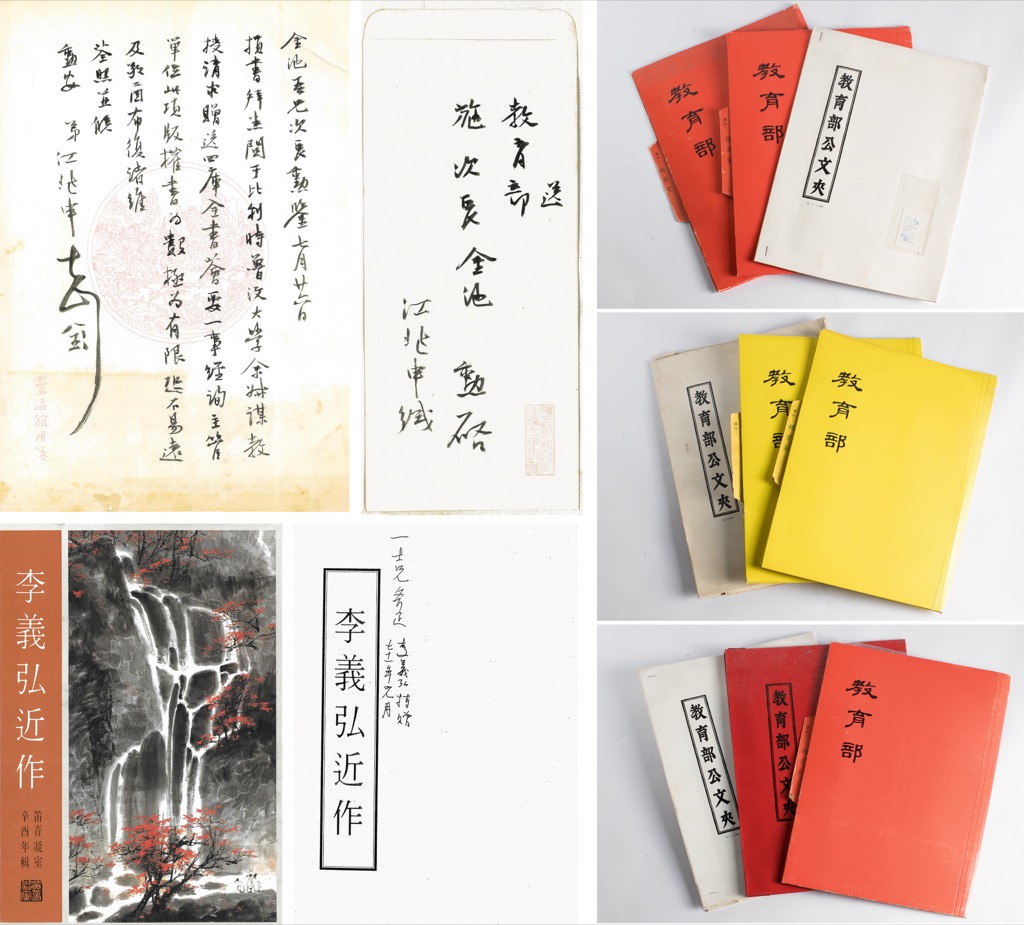 金池吾兄次長勳鑒七月廿六日
損書拜悉關于比利時魯汶大學余叔謀教
授請求贈送四庫全書薈要一事經詢主管
單位此項版權書為數極為有限恐不易遠
及耑函布復諸維
荃照並頌
勳安 弟江兆申
靈漚館用箋
送
教育部
施次長金池 勳啓
江兆申緘
李義弘近作
笛音凝室
辛酉年輯
一士兄斧正
李義弘持贈
七十一年元月
李義弘近作
教育部
教育部
教育部公文夾
教育部公文夾
教育部
教育部
教育部公文夾
教育部公文夾
教育部